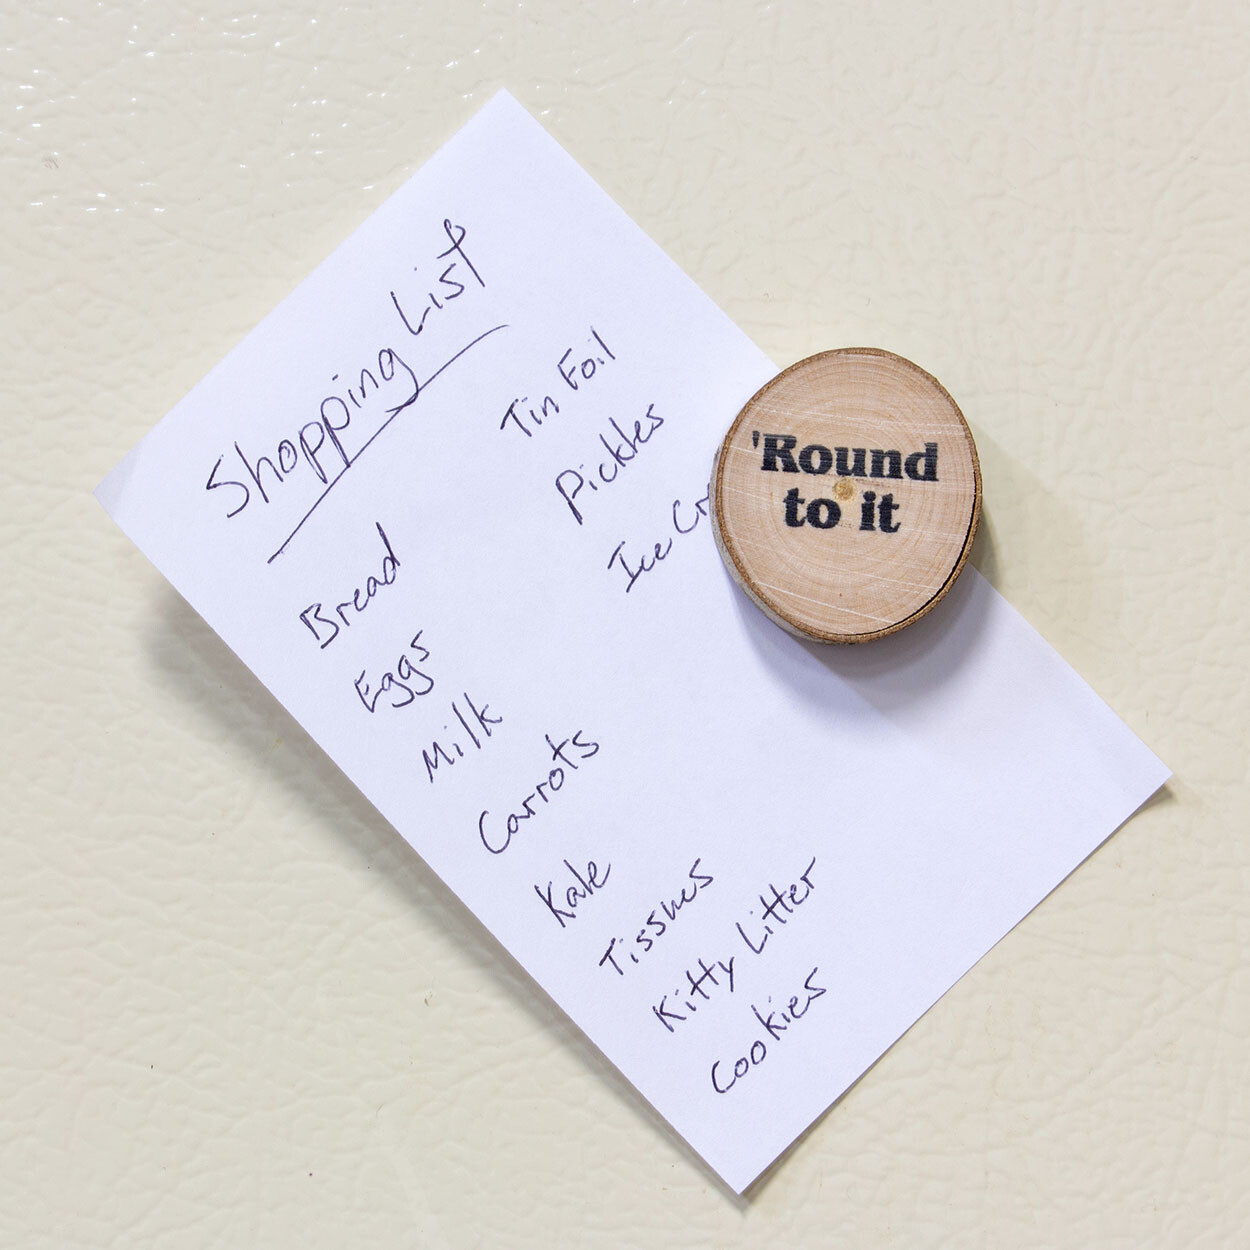 Shopping List
Bread
Eggs
Milk
Carrots
Kale
Tissues
Kitty Litter
Cookies
Tin Foil
Pickles
Ice Cr
'Round
to it